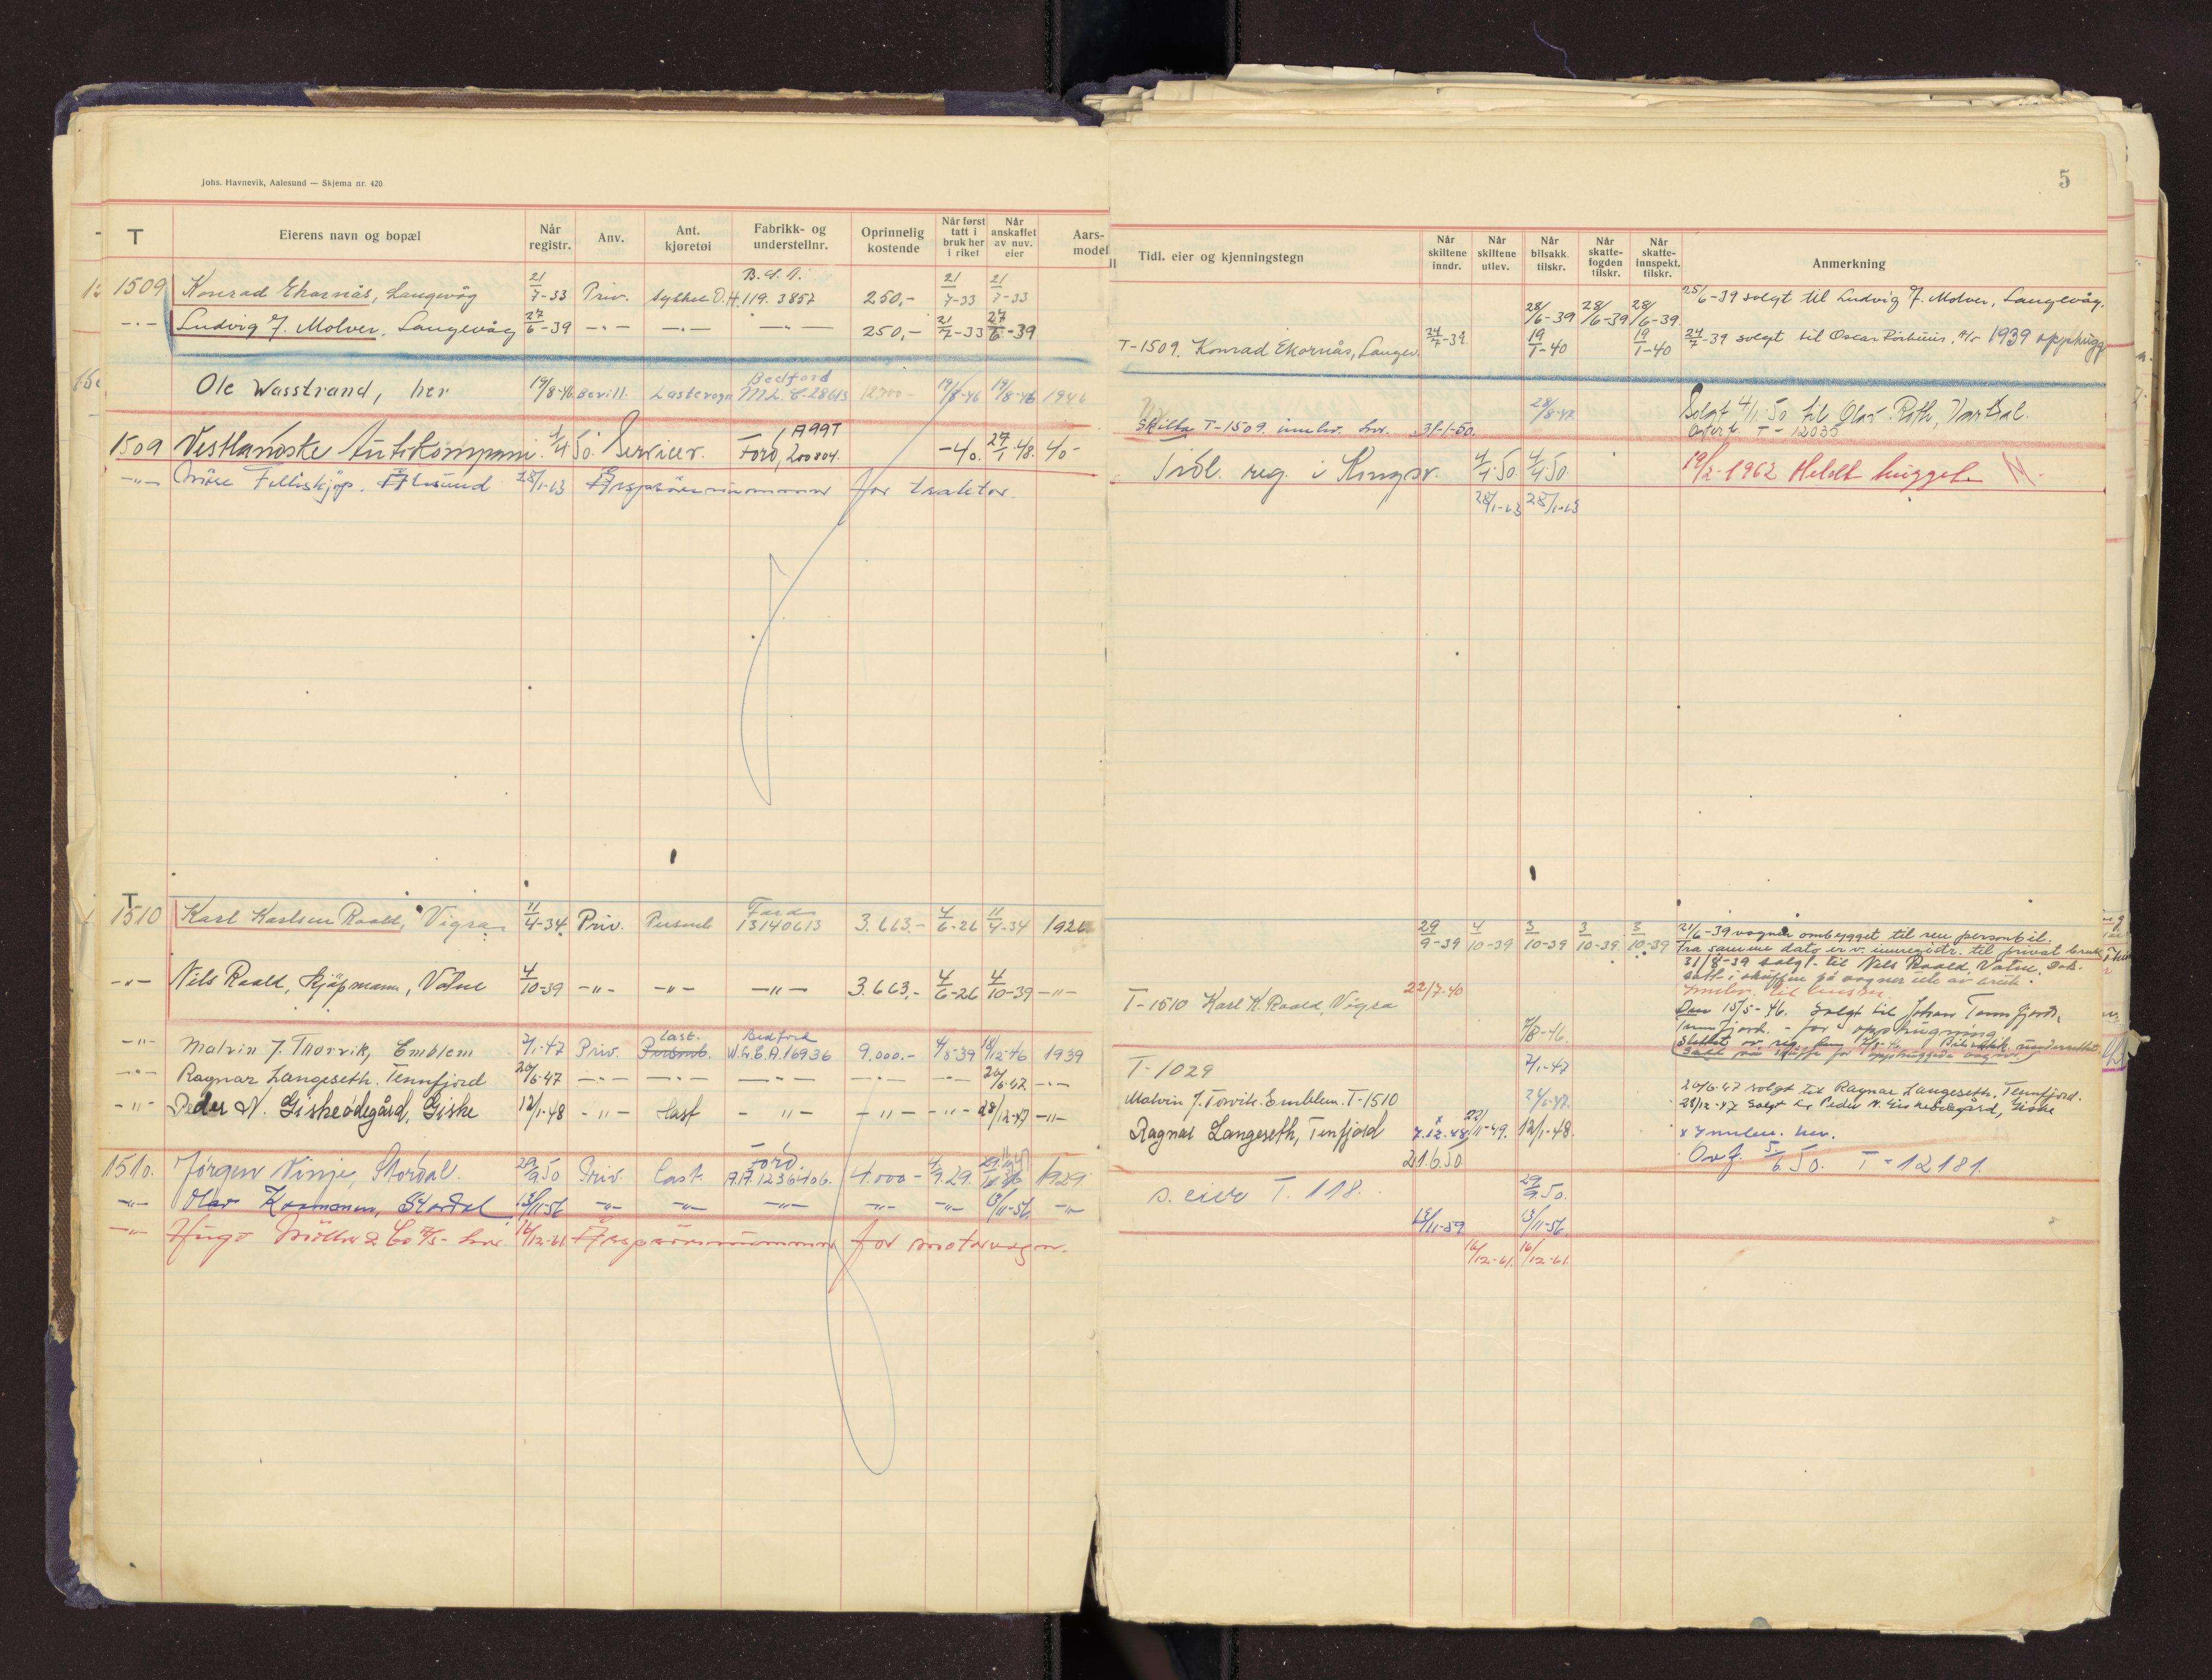 Johs. Havnevik, Aalesund — Skjema nr. 420
5
T Eierens navn og bopæl Når registr. Anv. Ant. kjøretøi Fabrikk- og understellnr. Oprinnelig kostende Når først tatt i bruk her i riket Når anskaffet av nuv. eier Aars-modell
Tidl. eier og kjenningstegn Når skiltene inndr. Når skiltene utlev. Når bilsakk. tilskr. Når skatte-fogden tilskr. Når skatte-innspekt. tilskr. Anmerkning
1509 Konrad Ekornås, Langevåg 21/7-33 Priv. B.S.A. 119. 3857 250,- 21/7-33 21/7-33
28/6-39 28/6-39 28/6-39 25/6-39 solgt til Ludvig J. Molver, Langevåg.
-"- Ludvig J. Molver, Langevåg 27/6-39 -"- -"- -"- 250,- 21/7-33 27/6-39
T-1509. Konrad Ekornås, Langev. 24/7-39 19/1-40 19/1-40 24/7-39 solgt til Oscar 1939 opphugg
Ole Wasstrand, her 19/8-46 Bevill. Lastevogn Bedford 19/8-46 19/8-46 1946
28/8-47
Skilta T-1509. innlev. her. 31-1-50. Solgt 4/1-50 til Olav Roth, Vartdal.
T-12035
1509 Vestlandske Autokompani 4/4 50. Servicev. Ford, 1A99T 200804. -40. 29/1-48. 40-
Tidl. reg. i Kongsv. 4/4-50 4/4-50 19/2-1962 Meldt hugget.
-"- Møre Felleskjøp. Ålesund 28/1-63 Årsprøvenummer for traktor.
28/1-63 28/1-63
T
1510 Karl Karlsen Roald, Vigra 11/4-34 Priv. Personb Ford 13140613 3.663.- 4/6-26 11/4-34 1926
29/9-39 4/10-39 3/10-39 3/10-39 3/10-39 21/6-39 vognen ombygget til ren personbil.
Fra samme dato er v. innregistr. til privat bruk
31/8-39 solgt til Nils Roald, Vatne. Dok.
satt i skuffen på vogner ute av bruk.
-"- Nils Roald, Kjøpmann, Vatne 4/10-39 -"- -"- -"- 3.663,- 4/6-26 4/10-39 -"-
T-1510 Karl K. Roald, Vigra 22/7-40
Den 15/5-46. solgt til Johan Tennfjord,
Tennfjord. - for opphugning
7/8-46.
-"- Malvin J. Thorvik, Emblem 2/1-47 Priv. Last. Personb. Bedford W.L.G.A.16936 9.000.- 4/8-39 18/12-46 1939
T-1029 2/1-47
-"- Ragnar Langeseth. Tennfjord 20/6-47 -"- -"- -"- -"- -"- 20/6-47 -"-
Malvin J. Torvik. Emblem. T-1510 24/6-47. 20/6-47 solgt til Ragnar Langeseth. Tennfjord.
-"- Peder N. Giskeødegård, Giske 12/1-48 -"- Last -"- -"- -"- 28/12-47 -"-
28/12-47 solgt til Peder N. Giskeødegård, Giske
Ragnar Langeseth, Tenfjord 7.12.48 22/11-49. 12/1-48. x Innlev. her.
21.6.50 Ovf. 5/6 50. T-12181.
1510. Jørgen Vinje, Stordal. 29/9 50 Priv. Last. Ford. A.A.1236406. 4.000- 4/9.29. 1929
s. eier T. 118. 29/9.50.
-"- Olav Stordal 13/11-56 -"- -"- -"- -"- -"- 13/11-56. -"-
13/11-59 13/11-56
-"- Hugo Møller & Co A/S- her. 16/12-61 Årsprøvenummer for motorvogn.
16/12-61. 16/12-61.